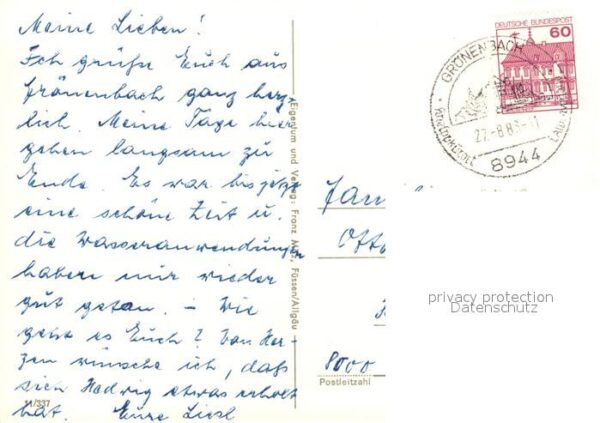 Meine Lieben!
Ich grüße Euch aus
Grönenbach ganz herz
lich. Meine Tage hier
gehen langsam zu
Ende. Es war bis jetzt
eine schöne Zeit u.
die Wasseranwendungen
haben mir wieder
gut getan. – Wie
geht es Euch? Von Her-
zen wünsche ich, daß
sich Hedwig etwas erholt
hat. Eure Liesl
11/337
Eigentum und Verlag: Franz Milz, Füssen/Allgäu
DEUTSCHE BUNDESPOST
60
GRÖNENBACH
8944
Fam
Otto
8000
Postleitzahl
privacy protection
Datenschutz